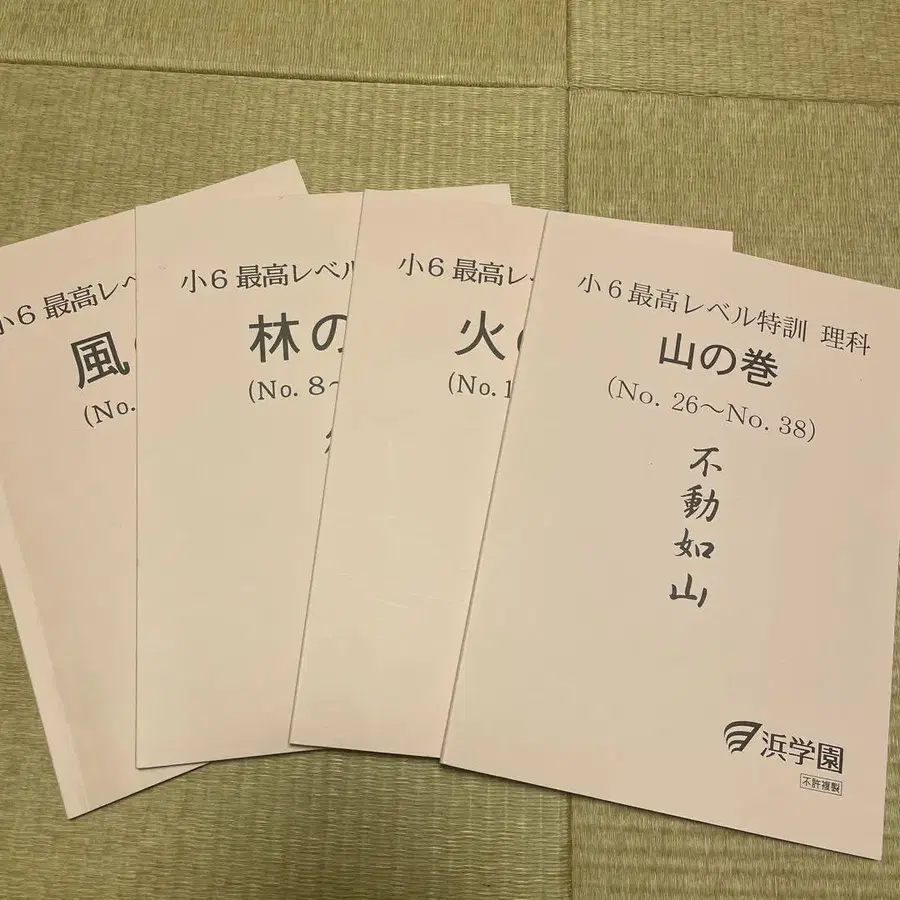 小6 最高レベ
風
(No.
小6 最高レベル
林の
(No. 8～
小6 最高レ
火
(No. 1
小6 最高レベル特訓 理科
山の巻
(No. 26～No. 38)
不動如山
浜学園
不許複製